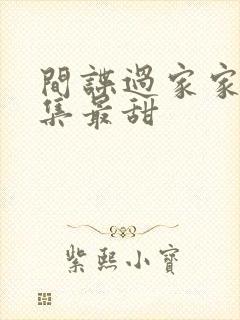 間諜過家家
集最甜
紫熙小寶